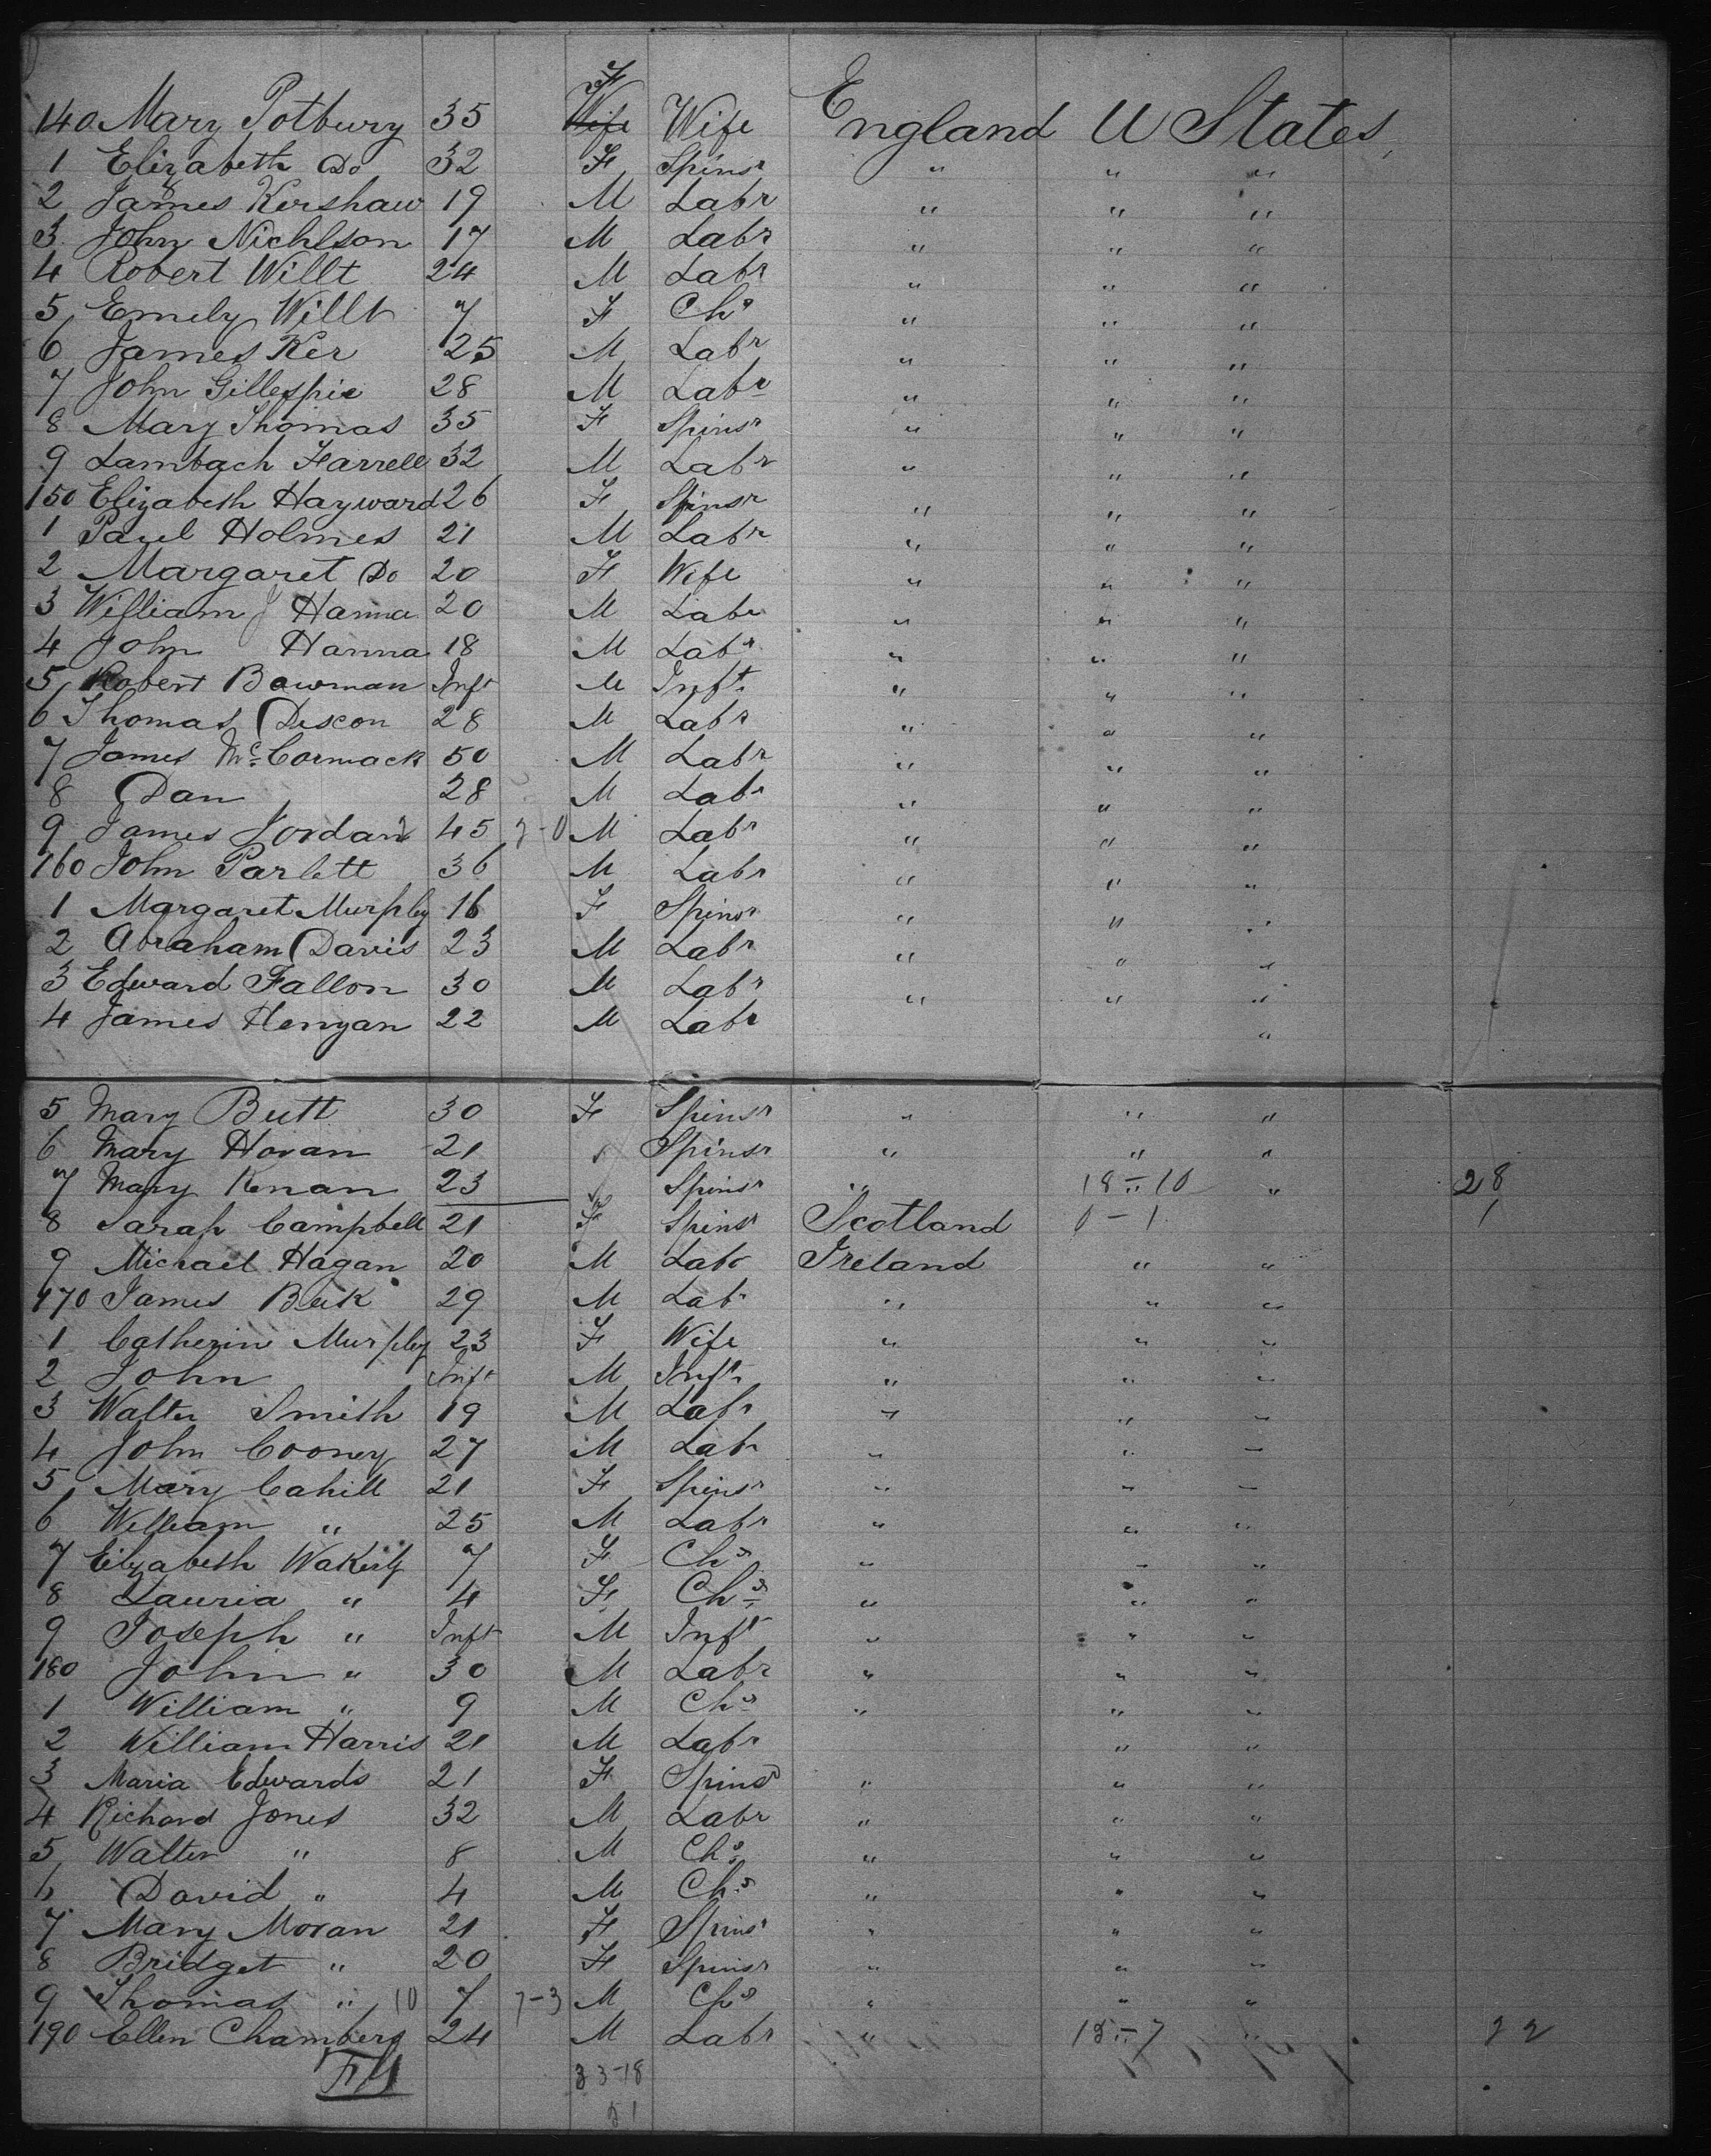 140 Mary Potbury 35 F Wife Wife England U States
1 Elizabeth Do 32 F Spinsr " " "
2 James Kershaw 19 M Labr " " "
3 John Nichlson 17 M Labr " " "
4 Robert Willt 24 M Labr " " "
5 Emily Willt 7 F Chd " " "
6 James Ker 25 M Labr " " "
7 John Gillespie 28 M Labr " " "
8 Mary Thomas 35 F Spinsr " " "
9 Lambach Farrell 32 M Labr " " "
150 Elizabeth Hayward 26 F Spinsr " " "
1 Paul Holmes 21 M Labr " " "
2 Margaret Do 20 F Wife " " "
3 William J Hanna 20 M Labr " " "
4 John Hanna 18 M Labr " " "
5 Robert Bowman Inft M Inft " " "
6 Thomas Dixon 28 M Labr " " "
7 James McCormack 50 M Labr " " "
8 Dan 28 M Labr " " "
9 James Jordan 45 7-0 M Labr " " "
160 John Parlett 36 M Labr " " "
1 Margaret Murphy 16 F Spinsr " " "
2 Abraham Davis 23 M Labr " " "
3 Edward Fallon 30 M Labr " " "
4 James Henyan 22 M Labr "
5 Mary Butt 30 F Spinsr " " "
6 Mary Horan 21 " Spinsr " " "
7 Mary Kenan 23 " Spinsr " 18-10 " 28
8 Sarah Campbell 21 F Spinsr Scotland 0-1 1
9 Michael Hagan 20 M Labr Ireland " "
170 James Beck 29 M Labr " " "
1 Catherin Murphy 23 F Wife " " "
2 John Inft M Inft " " "
3 Walter Smith 19 M Labr " " "
4 John Cooney 27 M Labr " " "
5 Mary Cahill 21 F Spinsr " " "
6 William " 25 M Labr " " "
7 Elizabeth 7 F Chd " " "
8 Lauria " 4 F Chd " " "
9 Joseph " Inft M Inft " " "
180 John " 30 M Labr " " "
1 William " 9 M Chd " " "
2 William Harris 21 M Labr " "
3 Maria Edwards 21 F Spinsr " " "
4 Richard Jones 32 M Labr " " "
5 Walter " 8 M Chd " " "
6 David " 4 M Chd " " "
7 Mary Moran 21 F Spinsr " " "
8 Bridget " 20 F Spinsr " " "
9 Thomas " 10 7 7-3 M Chd " " "
190 Ellen Chambers 24 M Labr " 12-7 " 22
33-18
51